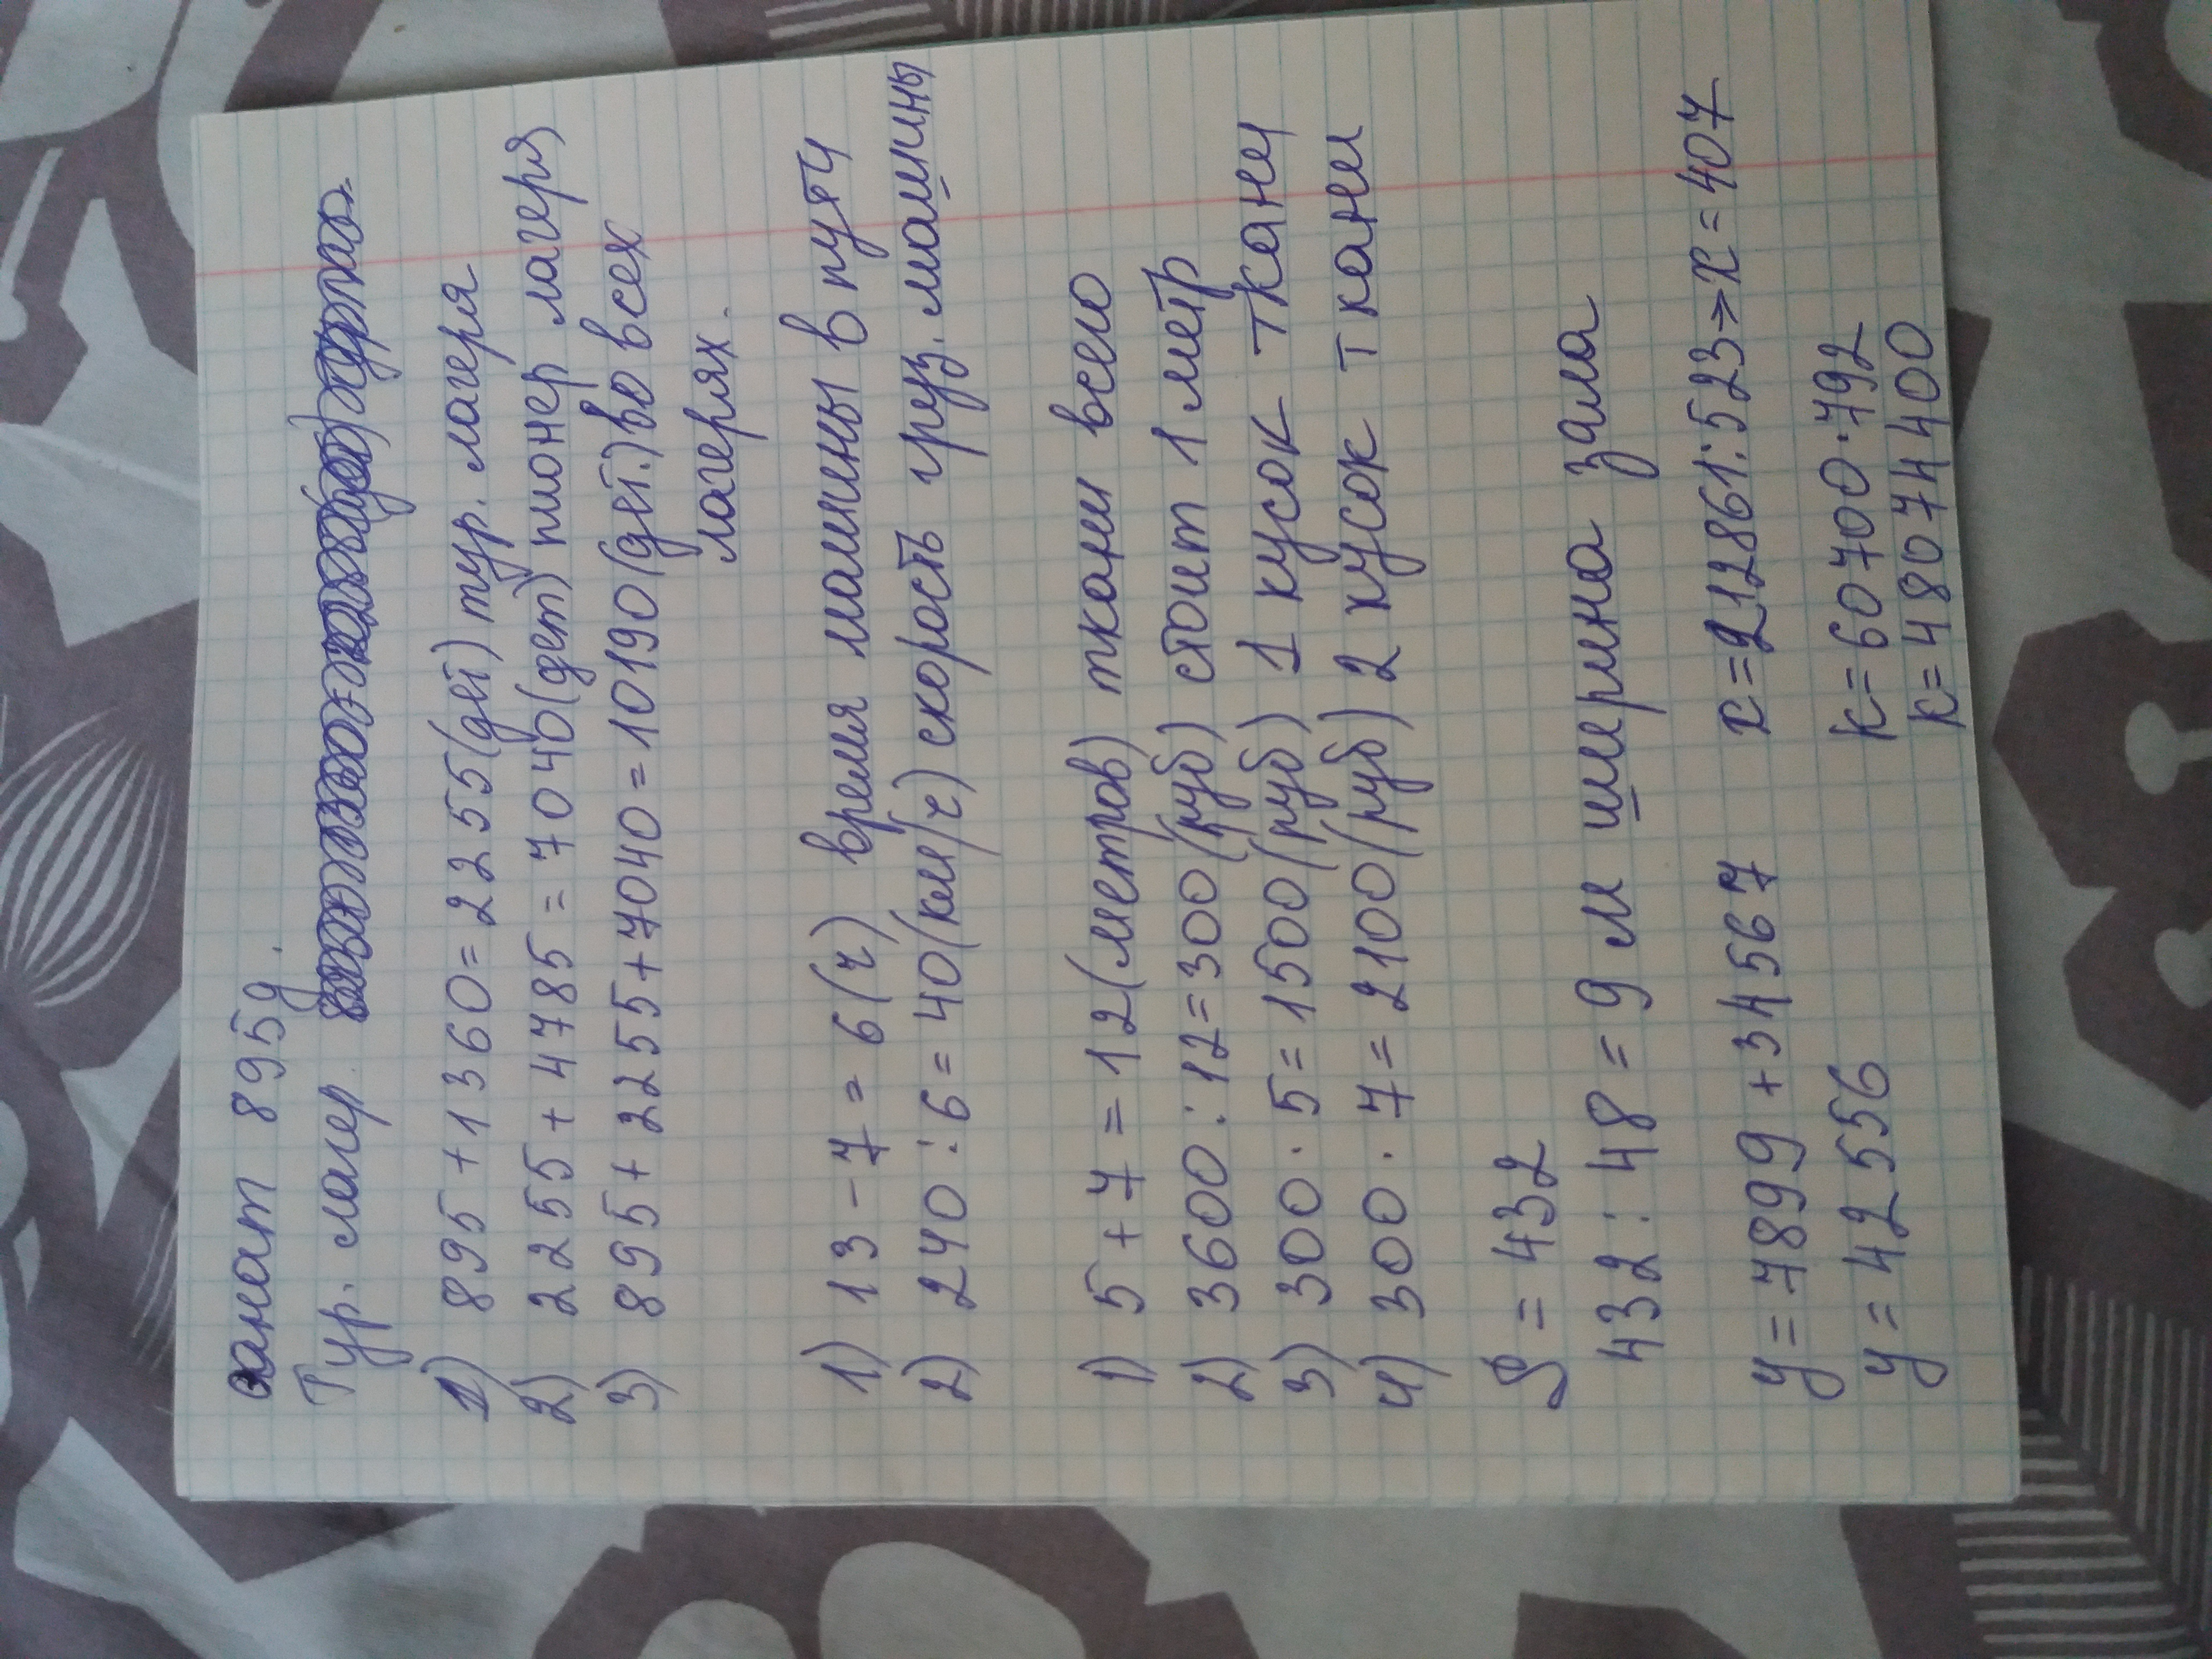 санат 895д.
Тур. лагер
1) 895+1360=2255(дет) тур. лагеря
2) 2255+4785=7040(дет) пионер лагеря
3) 895+2255+7040=10190(дет.) во всех
лагерях.
1) 13-7=6(ч) время машины в пути
2) 240:6=40(км/ч) скорость груз. машины
1) 5+7=12(метров) ткани всего
2) 3600:12=300(руб) стоит 1 метр
3) 300·5=1500(руб) 1 кусок ткани
4) 300·7=2100(руб) 2 кусок ткани
S=432
432:48=9 м ширина зала
y=7899+34567 x=212861:523=>x=407
y=42556 k=60700·792
k=48074400